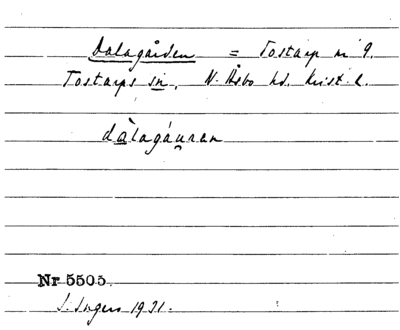 Dalagården = Tostarp nr 9.
Tostarps sn, N. Åsbo hd. Krist. l.
dàlagáu̯ran
Nr 5505.
I. Ingers 1931.